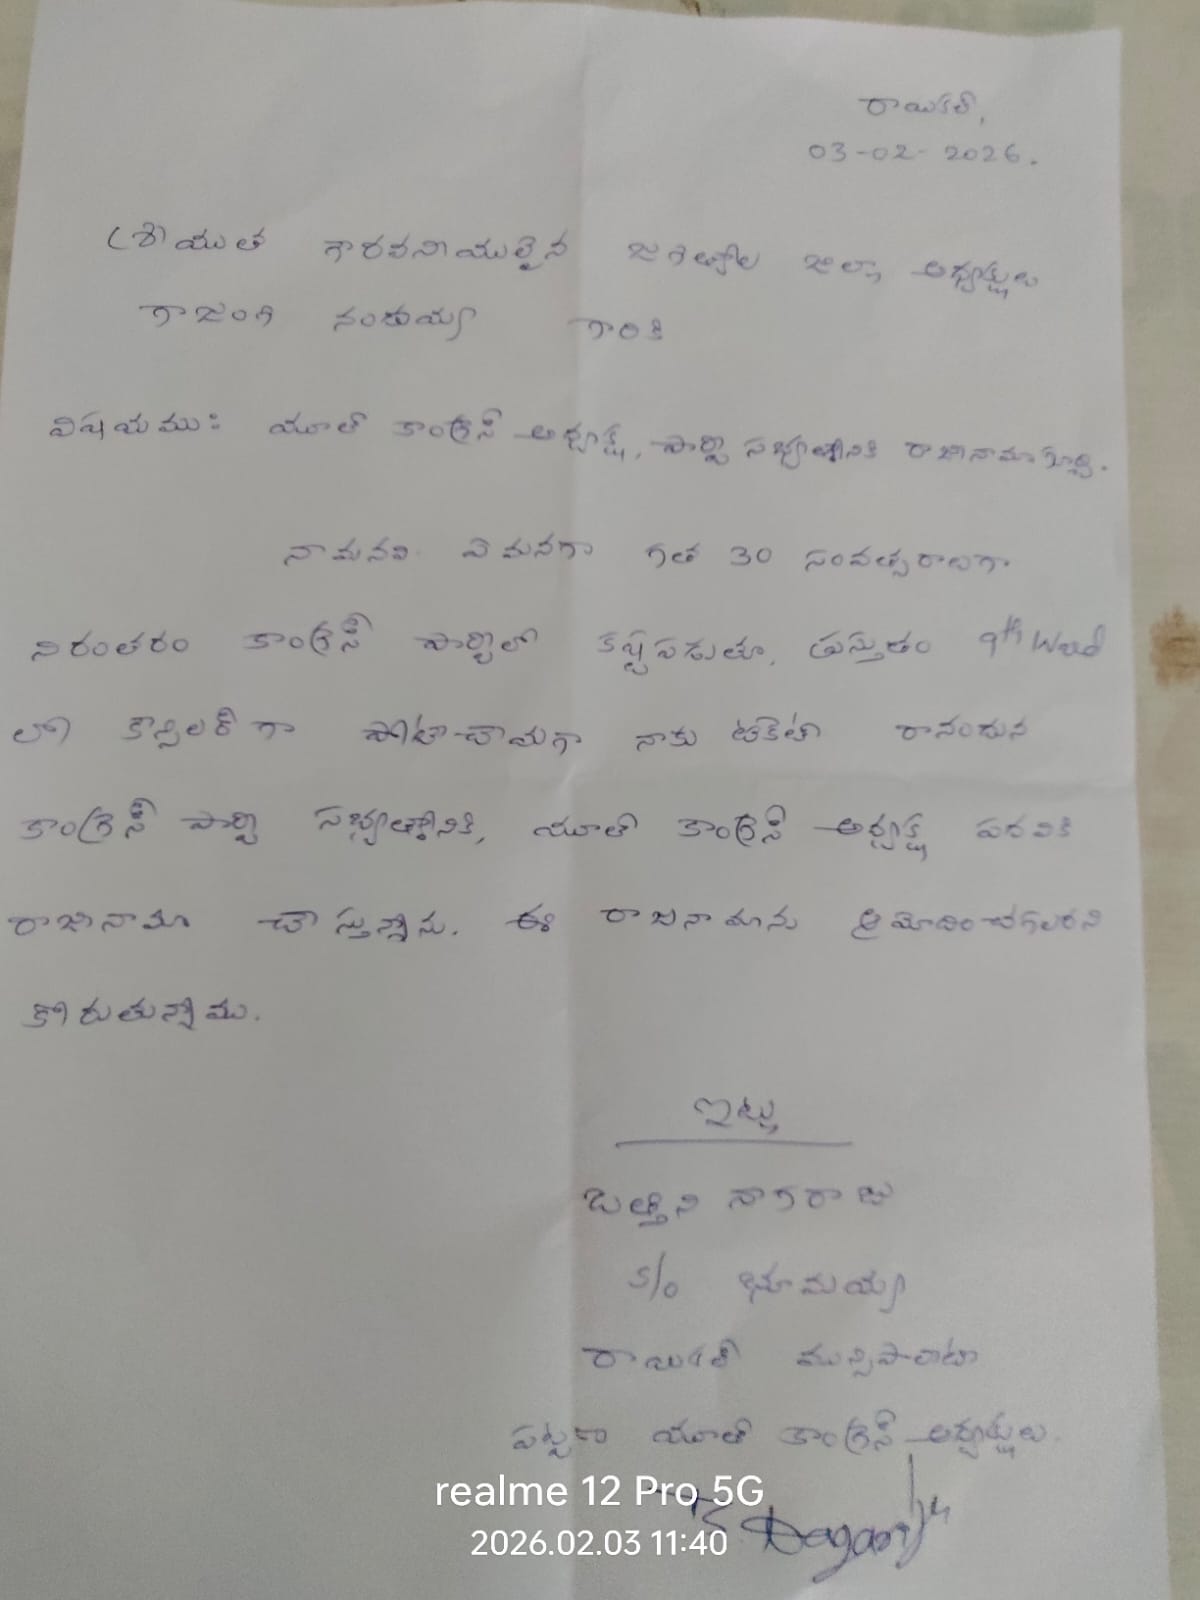 రాయికల్,
03-02-2026.
శ్రీయుత గౌరవనీయులైన జగిత్యాల జిల్లా అధ్యక్షులు
గాజంగి నందయ్య గారికి
విషయము: యూత్ కాంగ్రెస్ అధ్యక్ష, పార్టీ సభ్యత్వానికి రాజీనామా గూర్చి.
నా మనవి ఏమనగా గత 30 సంవత్సరాలుగా
నిరంతరం కాంగ్రెస్ పార్టీలో కష్టపడుతూ, ప్రస్తుతం 9th Ward
లో కౌన్సిలర్ గా పోటీచేయగా నాకు టికెట్ రానందున
కాంగ్రెస్ పార్టీ సభ్యత్వానికి, యూత్ కాంగ్రెస్ అధ్యక్ష పదవికి
రాజీనామా చేస్తున్నాను. ఈ రాజీనామాను ఆమోదించగలరని
కోరుతున్నాము.
ఇట్లు
బత్తిని నాగరాజు
S/o భూమయ్య
రాయికల్ మున్సిపాలిటీ
పట్టణ యూత్ కాంగ్రెస్ అధ్యక్షులు.
realme 12 Pro 5G
2026.02.03 11:40